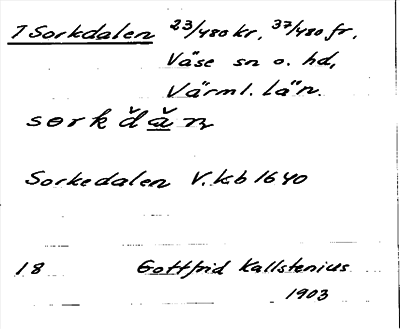 1 Sorkdalen 23/480 kr, 37/480 fr,
Väse sn o. hd,
Värml. län.
sɵrkd̆ăn
Sorkedalen V. kb 1640
18 Gottfrid Kallstenius
1903